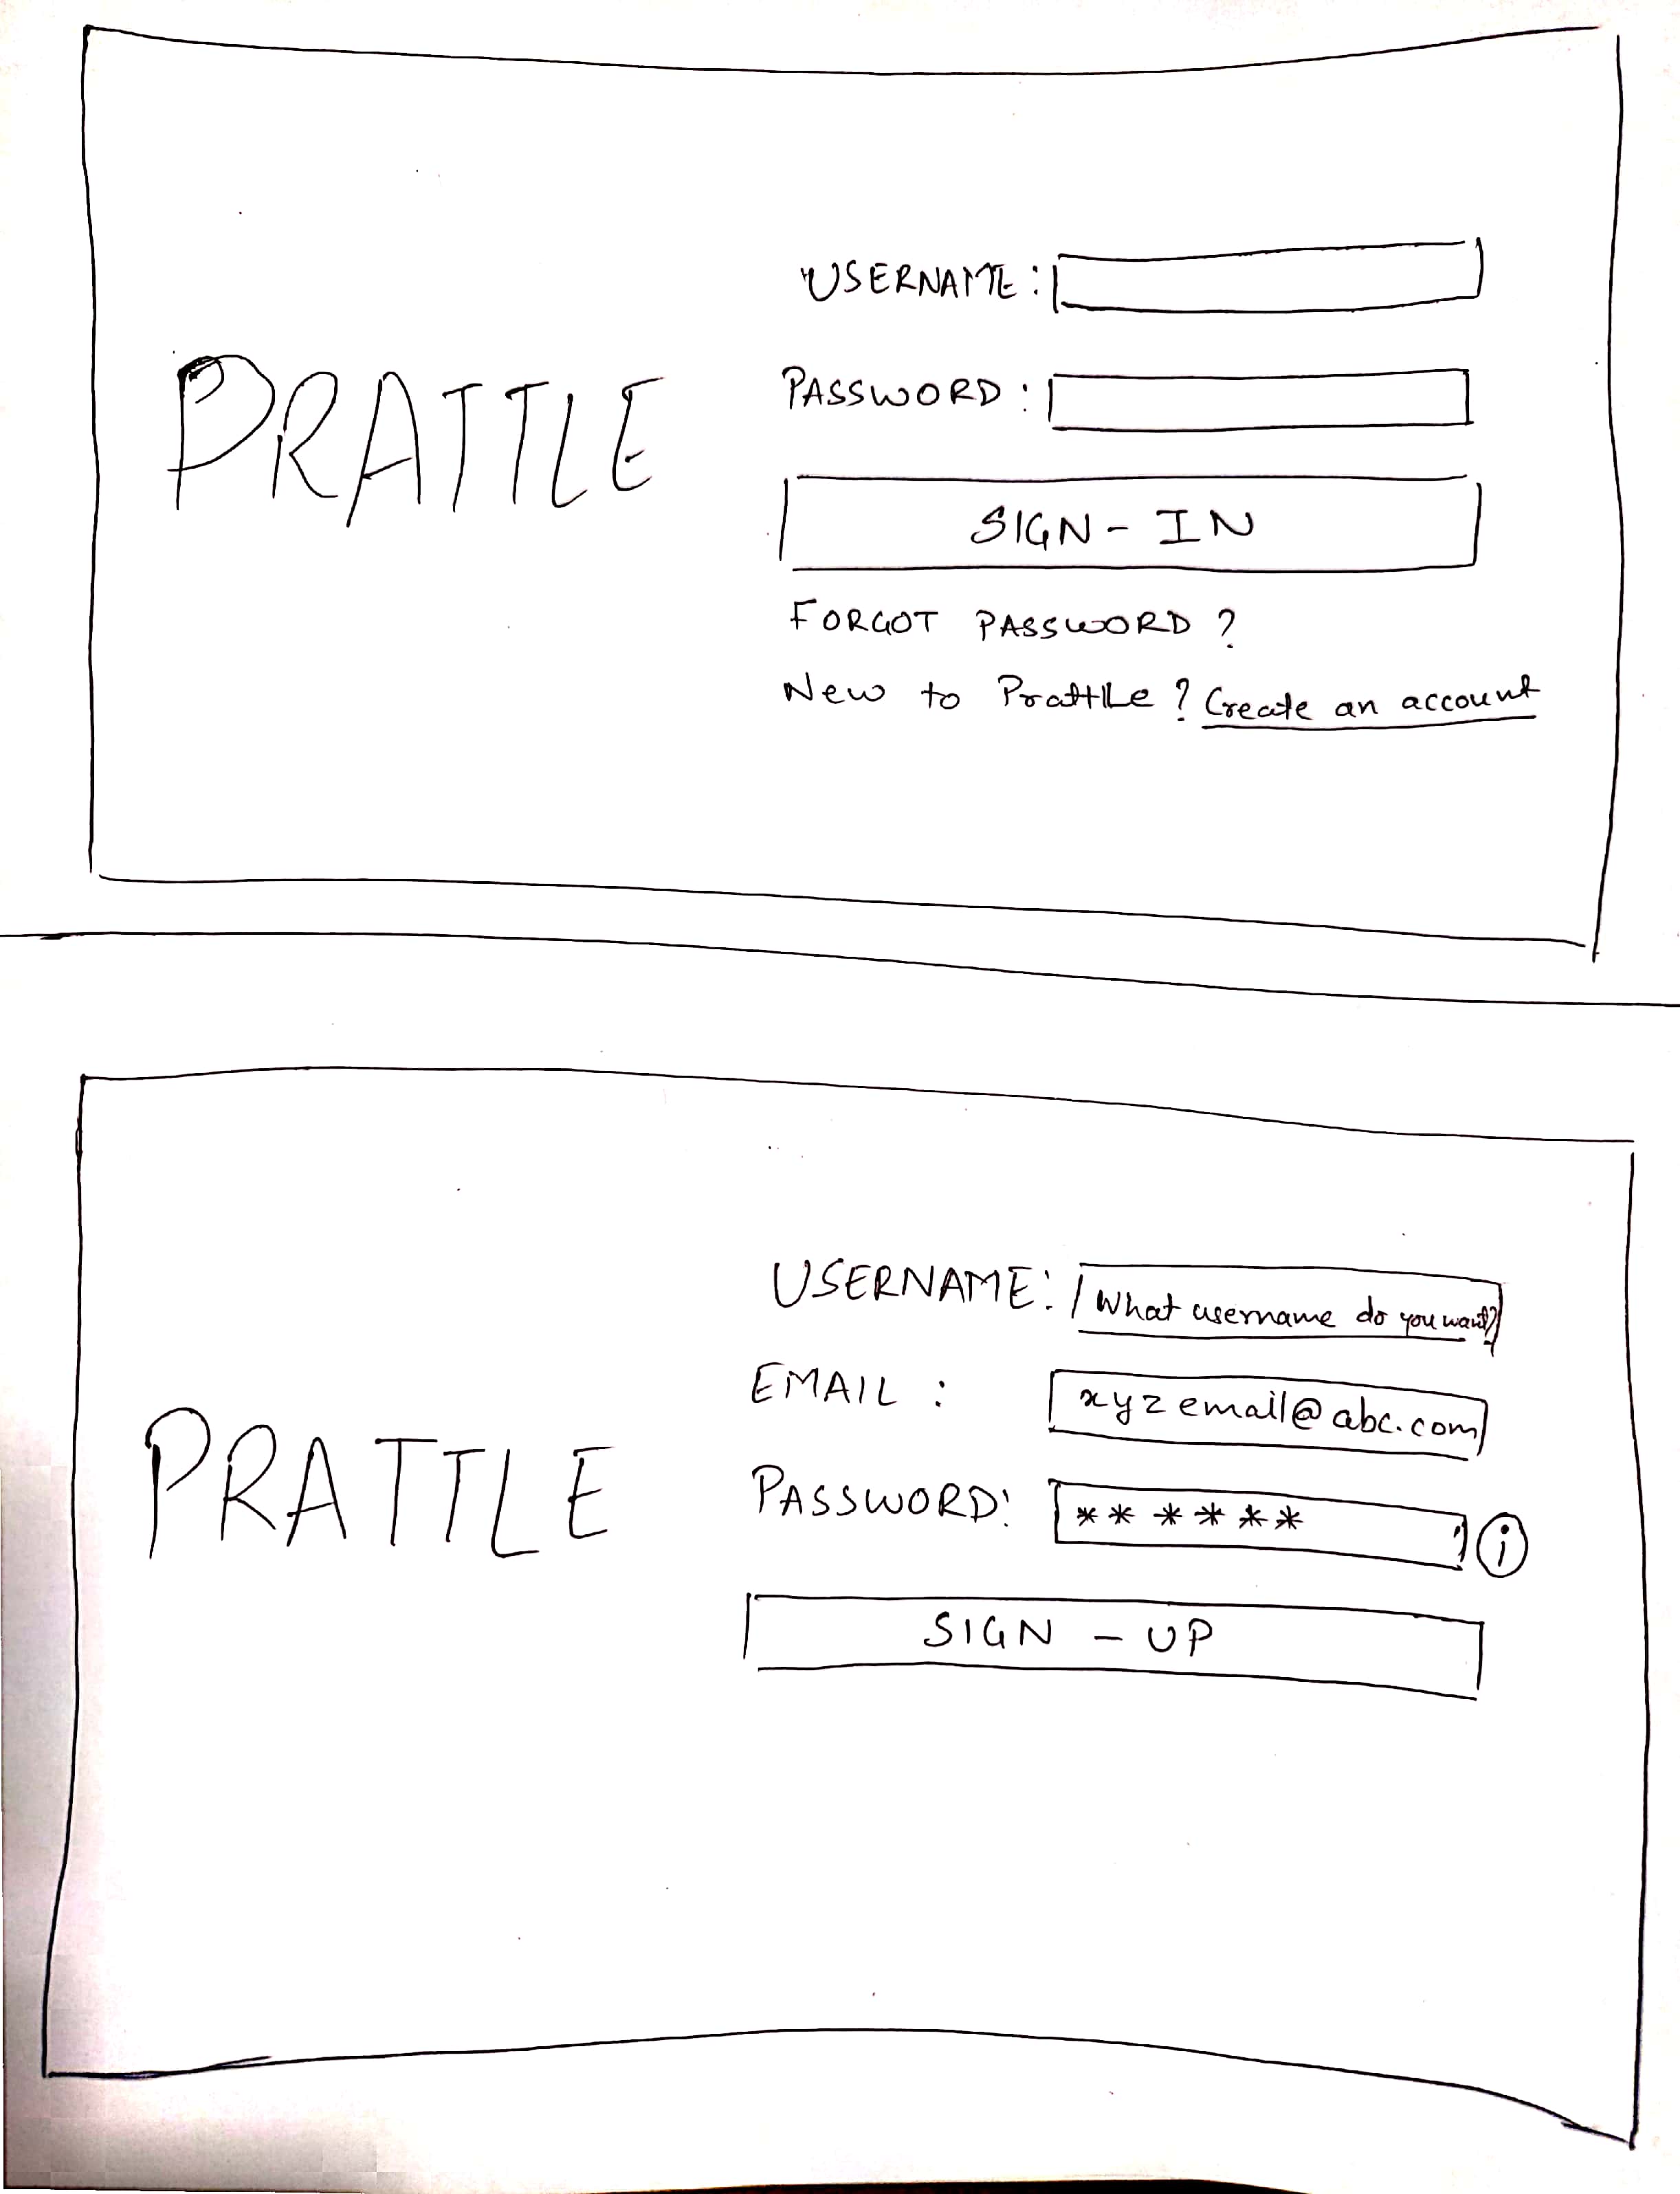 USERNAME:
PRATTLE
PASSWORD:
SIGN-IN
FORGOT PASSWORD?
New to Prattle? Create an account
USERNAME: What username do you want?
EMAIL: xyzemail@abc.com
PRATTLE
PASSWORD: ****** i
SIGN-UP